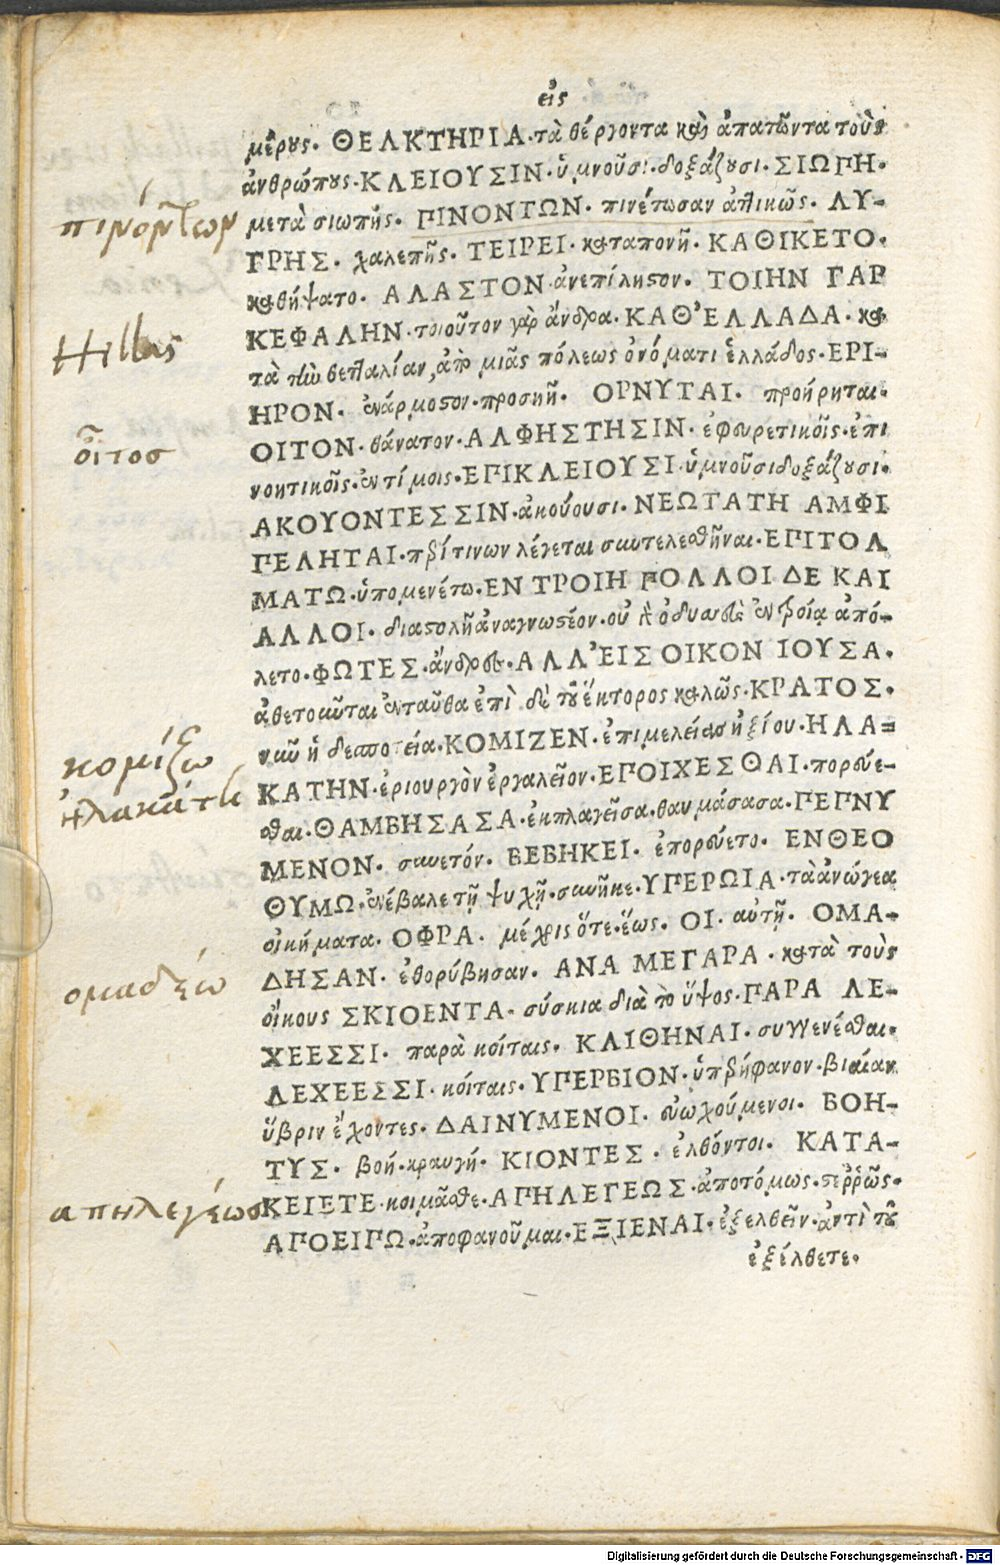 εἰς
μέρους. ΘΕΛΚΤΗΡΙΑ. τὰ θέλγοντα καὶ ἀπατῶντα τοὺς
ἀνθρώπους. ΚΛΕΙΟΥΣΙΝ. ὑμνοῦσι. δοξάζουσι. ΣΙΩΠΗ.
μετὰ σιωπῆς. ΠΙΝΟΝΤΩΝ. πινέτωσαν ἀττικῶς. ΛΥ-
πινόντων
ΓΡΗΣ. χαλεπῆς. ΤΕΙΡΕΙ. καταπονῆ. ΚΑΘΙΚΕΤΟ.
καθήψατο. ΑΛΑΣΤΟΝ. ἀνεπίληστον. ΤΟΙΗΝ ΓΑΡ
ΚΕΦΑΛΗΝ. τοιοῦτον γὰρ ἄνδρα. ΚΑΘ' ΕΛΛΑΔΑ. κα
Hellas
τὰ τὴν θετταλίαν, ἀπὸ μιᾶς πόλεως ὀνόματι ἑλλάδος. ΕΡΙ-
ΗΡΟΝ. ἐνάρμοστον. προσηνῆ. ΟΡΝΥΤΑΙ. προῄρηται.
ΟΙΤΟΝ. θάνατον. ΑΛΦΗΣΤΗΣΙΝ. ἐφευρετικοῖς. ἐπι
οἶτος
νοητικοῖς. ἐντίμοις. ΕΠΙΚΛΕΙΟΥΣΙ. ὑμνοῦσι δοξάζουσι.
ΑΚΟΥΟΝΤΕΣΣΙΝ. ἀκούουσι. ΝΕΩΤΑΤΗ ΑΜΦΙ
ΠΕΛΗΤΑΙ. περί τινων λέγεται συντελεσθῆναι. ΕΠΙΤΟΛ
ΜΑΤΩ. ὑπομενέτω. ΕΝ ΤΡΟΙΗ ΠΟΛΛΟΙ ΔΕ ΚΑΙ
ΑΛΛΟΙ. διαστολῆ ἀναγνωστέον. οὐ γὰρ ὀδυσσεὺς ἐν τροίᾳ ἀπό-
λετο. ΦΩΤΕΣ. ἄνδρες. ΑΛΛ' ΕΙΣ ΟΙΚΟΝ ΙΟΥΣΑ.
ἀθετοῦνται ἐνταῦθα ἐπὶ δὲ τοῦ ἕκτορος καλῶς. ΚΡΑΤΟΣ.
νῦν ἡ δεσποτεία. ΚΟΜΙΖΕΝ. ἐπιμελείας ἠξίου. ΗΛΑ=
κομίζω
ΚΑΤΗΝ. ἐριουργὸν ἐργαλεῖον. ΕΠΟΙΧΕΣΘΑΙ. πορεύε-
ἠλακάτη
σθαι. ΘΑΜΒΗΣΑΣΑ. ἐκπλαγεῖσα. θαυμάσασα. ΠΕΠΝΥ
ΜΕΝΟΝ. συνετόν. ΒΕΒΗΚΕΙ. ἐπορεύετο. ΕΝΘΕΟ
ΘΥΜΩ. ἐνέβαλε τῇ ψυχῇ. συνῆκε. ΥΠΕΡΩΙΑ. τὰ ἀνώγεα
οἰκήματα. ΟΦΡΑ. μέχρις ὅτε. ἕως. ΟΙ. αὐτῇ. ΟΜΑ-
ΔΗΣΑΝ. ἐθορύβησαν. ΑΝΑ ΜΕΓΑΡΑ. κατὰ τοὺς
ομαδέω
οἴκους ΣΚΙΟΕΝΤΑ. σύσκια διὰ τὸ ὕψος. ΠΑΡΑ ΛΕ-
ΧΕΕΣΣΙ. παρὰ κοίταις. ΚΛΙΘΗΝΑΙ. συγγενέσθαι.
ΛΕΧΕΕΣΣΙ. κοίταις. ΥΠΕΡΒΙΟΝ. ὑπερήφανον. βιαίαν
ὕβριν ἔχοντες. ΔΑΙΝΥΜΕΝΟΙ. εὐωχούμενοι. ΒΟΗ-
ΤΥΣ. βοή. κραυγή. ΚΙΟΝΤΕΣ. ἐλθόντοι. ΚΑΤΑ-
ΚΕΙΕΤΕ. κοιμᾶσθε. ΑΠΗΛΕΓΕΩΣ. ἀποτόμως. στερρῶς.
απηλεγέως
ΑΠΟΕΙΠΩ. ἀποφανοῦμαι. ΕΞΙΕΝΑΙ. ἐξελθεῖν. ἀντὶ τοῦ
ἐξέλθετε.
Digitalisierung gefördert durch die Deutsche Forschungsgemeinschaft - DFG